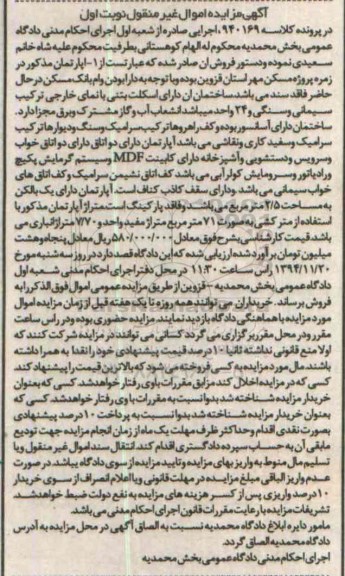 آگهی مزایده اموال غیر منقول نوبت اول
در پرونده کلاسه ۹۴۰۱۶۹ اجرایی صادره از شعبه اول اجرای احکام مدنی دادگاه
عمومی بخش محمدیه محکوم له الهام کوهستانی بطرفیت محکوم علیه شاه خانم
سعیدی نموده و دستور فروش آن صادر شده که عبارتست از ۱-اپارتمان مذکور در
زمره پروژه مسکن مهر استان قزوین بوده و با توجه به دارا بودن وام بانک مسکن در حال
حاضر فاقد سند می باشد ساختمان آن دارای اسکلت بتنی با نمای خارجی ترکیب
سیمانی و سنگی و ۲۴ واحد میباشد انشعاب آب و گاز مشترک و برق مجزا دارد.
ساختمان دارای آسانسور بوده و کف راهروها ترکیب سرامیک و سنگ و دیوارها ترکیب
سرامیک و سفید کاری و نقاشی می باشد آپارتمان دارای دو اتاق دارای دو اتاق خواب
و سرویس و دستشویی و آشپزخانه دارای کابینت MDF و سیستم گرمایش پکیج
و رادیاتور و سرمایش کولر آبی می باشد کف اتاق نشیمن سرامیک و کف اتاق های
خواب سیمانی می باشد و دارای سقف کاذب کناف است. آپارتمان دارای یک بالکن
به مساحت ۲/۵ متر مربع می باشد و فاقد پارکینگ است متراژ آپارتمان مذکور با
استفاده از متر کشی به صورت ۷۱ متر مربع متراژ مفید واحد و ۷/۷۰ متراژ انباری می
باشد. قیمت کارشناسی بشرح فوق معادل ۵۸۰/۰۰۰/۰۰۰ ریال معادل پنجاه و هشت
میلیون تومان برآورد شده ارزیابی شده که این دادگاه قصد دارد در روز سه شنبه مورخ
۱۳۹۴/۱۱/۲۰ راس ساعت ۱۱:۳۰ در محل دفتر اجرای احکام مدنی شعبه اول
دادگاه عمومی بخش محمدیه - قزوین از طریق مزایده عمومی اموال فوق الذکر را به
فروش برساند. خریداران می توانند همه روزه تا یک هفته قبل از زمان مزایده اموال
مورد مزایده با هماهنگی دادگاه بازدید نمایند. مزایده حضوری بوده و در راس ساعت
مقرر و در محل مقرر برگزاری می گردد کسانی می توانند در مزایده شرکت کنند که
اولا منع قانونی نداشته ثانیا ۱۰ درصد قیمت پیشنهادی خود را نقدا به همرا داشته
باشند. مال مورد مزایده به کسی فروخته می شود که بالاترین قیمت را پیشنهاد کند.
کسی که در مزایده اخلال کند مزابق مقررات با وی رفتار خواهد شد. کسی که بعنوان
خریدار مزایده شناخته شد بدوا نسبت به مقررات با وی رفتار خواهد شد. کسی که
بعنوان خریدار مزایده شناخته شد بدوا نسبت به پرداخت ۱۰ درصد پیشنهادی
بصورت نقدی اقدام و حداکثر ظرف مهلت یک ماه از زمان انجام مزایده جهت تودیع
مابقی آن به حساب سپرده دادگستری اقدام کند. انتقال سند اموال غیر منقول و یا
تسلیم مال منوط به واریز بهای مزایده و تایید مزایده از سوی دادگاه میباشد. در صورت
عدم واریز الباقی مبلغ مزایده در مهلت قانونی و یا اعلام انصراف از سوی خریدار
۱۰ درصد واریزی پس از کسر هزینه های مزایده به نفع دولت ضبط خواهد شد.
تشریفات مزایده با رعایت مقررات قانون اجرای احکام مدنی می باشد.
مامور دایره ابلاغ دادگاه محمدیه نسبت به الصاق آگهی در محل مزایده به آدرس
دادگاه محمدیه الصاق گردد.
اجرای احکام مدنی دادگاه عمومی بخش محمدیه